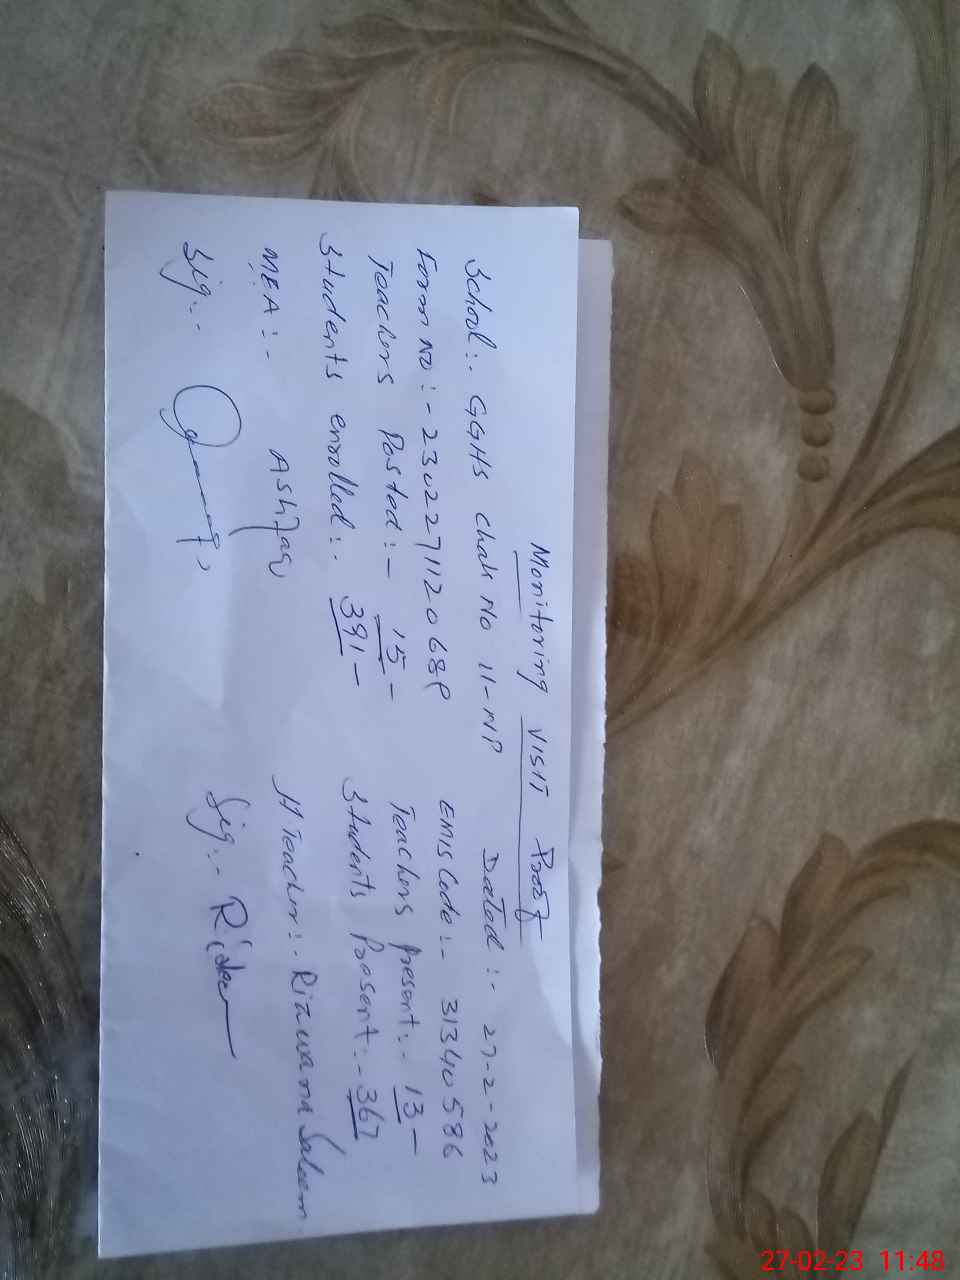 Monitoring VISIT Proof
School:- GGHS Chak No 11-NP Dated:- 27-2-2023
Form No:- 230227112068P EMIS Code:- 31340586
Teachers Posted:- 15- Teachers Present:- 13-
Students enrolled:- 391- Students Present:- 367
MEA:- Ashfaq H Teacher:- Rizwana Saleem
Sig:- Sig:-
27-02-23 11:48